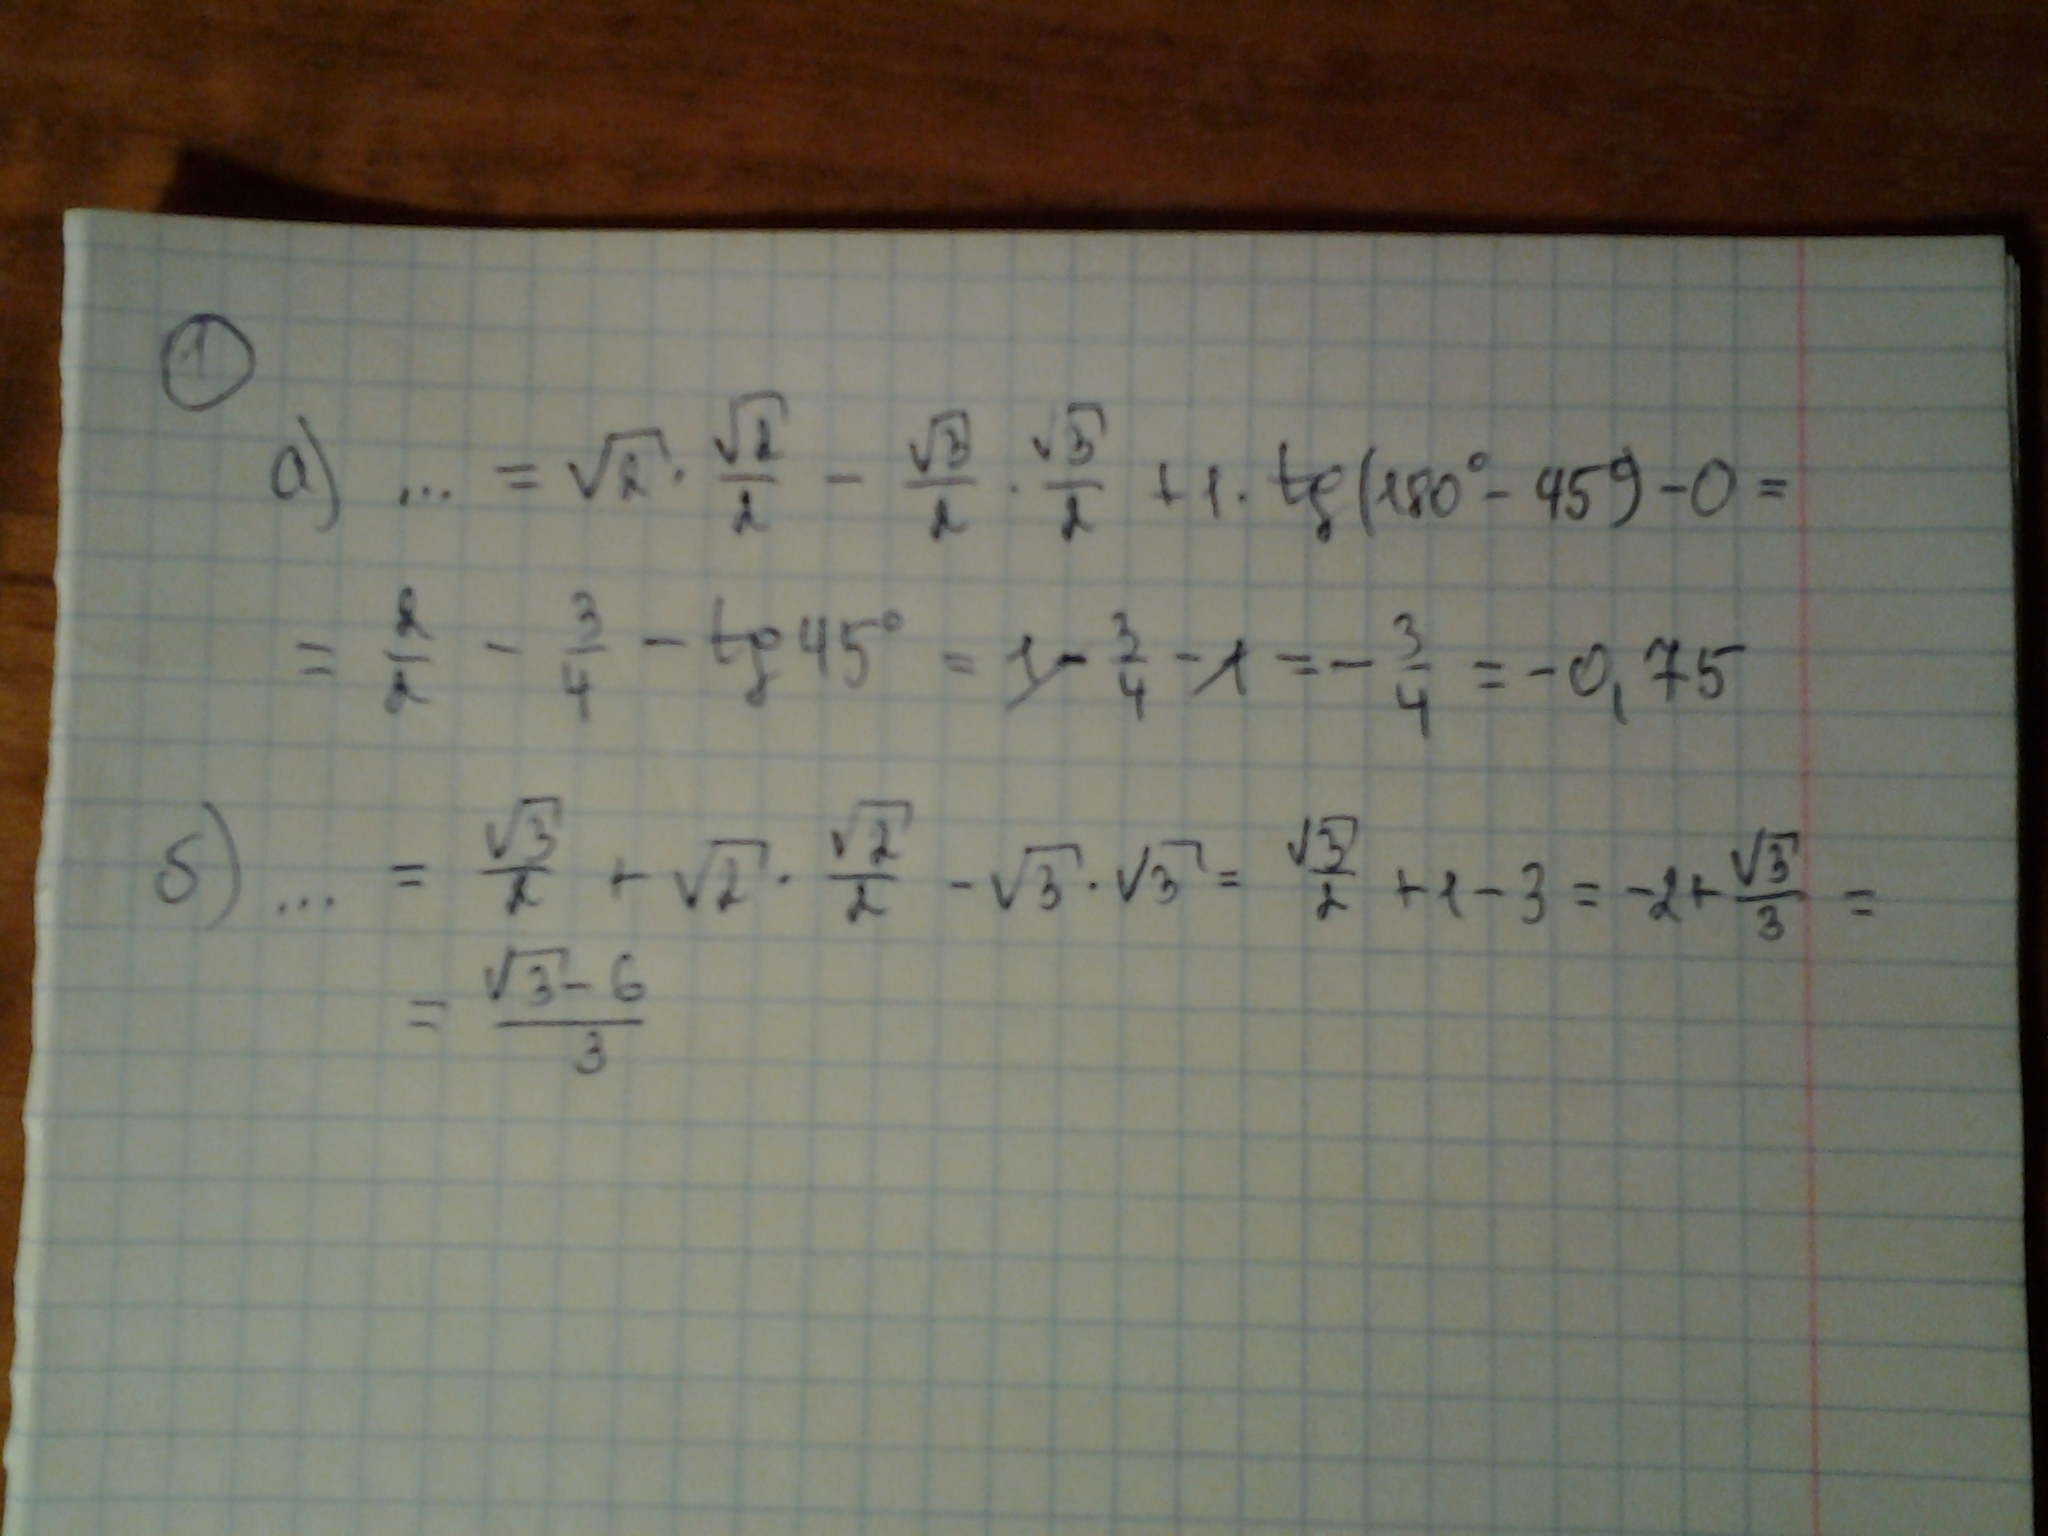 1
а) ... = √2 · √2/2 − √3/2 · √3/2 + 1 · tg(180° − 45°) − 0 =
= 2/2 − 3/4 − tg 45° = 1 − 3/4 − 1 = − 3/4 = −0,75
б) ... = √3/2 + √2 · √2/2 − √3 · √3 = √3/2 + 1 − 3 = −2 + √3/3 =
= (√3 − 6)/3